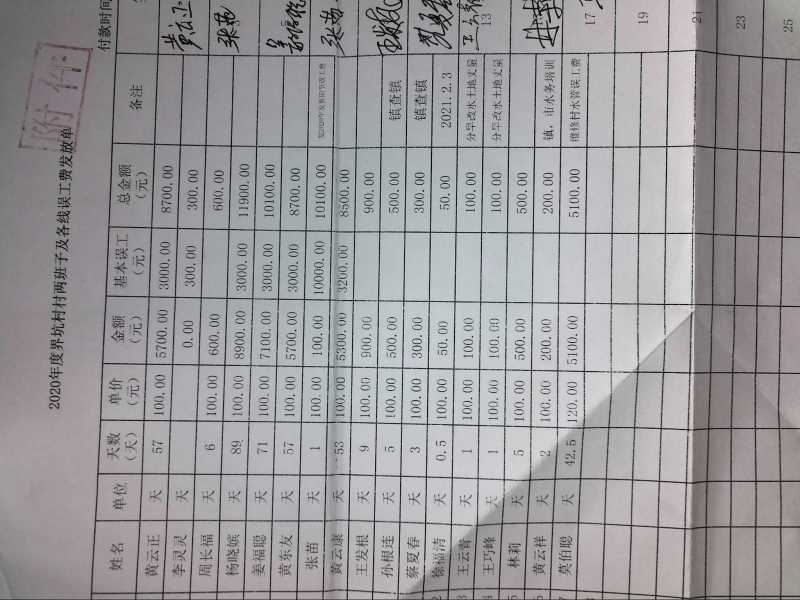 附件
2020年度界坑村村两班子及各线误工费发放单
付款时间
姓名 单位 天数（天） 单价（元） 金额（元） 基本误工（元） 总金额（元） 备注
黄云正 天 57 100.00 5700.00 3000.00 8700.00
李灵灵 天 0.00 300.00 300.00
周长福 天 6 100.00 600.00 600.00
杨晓嫔 天 89 100.00 8900.00 3000.00 11900.00
姜福聪 天 71 100.00 7100.00 3000.00 10100.00
黄东友 天 57 100.00 5700.00 3000.00 8700.00
张苗 天 1 100.00 100.00 10000.00 10100.00
黄云康 天 53 100.00 5300.00 3200.00 8500.00
王发根 天 9 100.00 900.00 900.00
孙根连 天 5 100.00 500.00 500.00 镇查镇
蔡夏春 天 3 100.00 300.00 300.00 镇查镇
徐福清 天 0.5 100.00 50.00 50.00 2021.2.3
王云青 天 1 100.00 100.00 100.00 分旱改水土地丈量
王巧峰 天 1 100.00 100.00 100.00 分旱改水土地丈量
林莉 天 5 100.00 500.00 500.00
黄云祥 天 2 100.00 200.00 200.00 镇，市水务培训
莫伯聪 天 42.5 120.00 5100.00 5100.00 维修村水管误工费
13
17
19
21
23
25